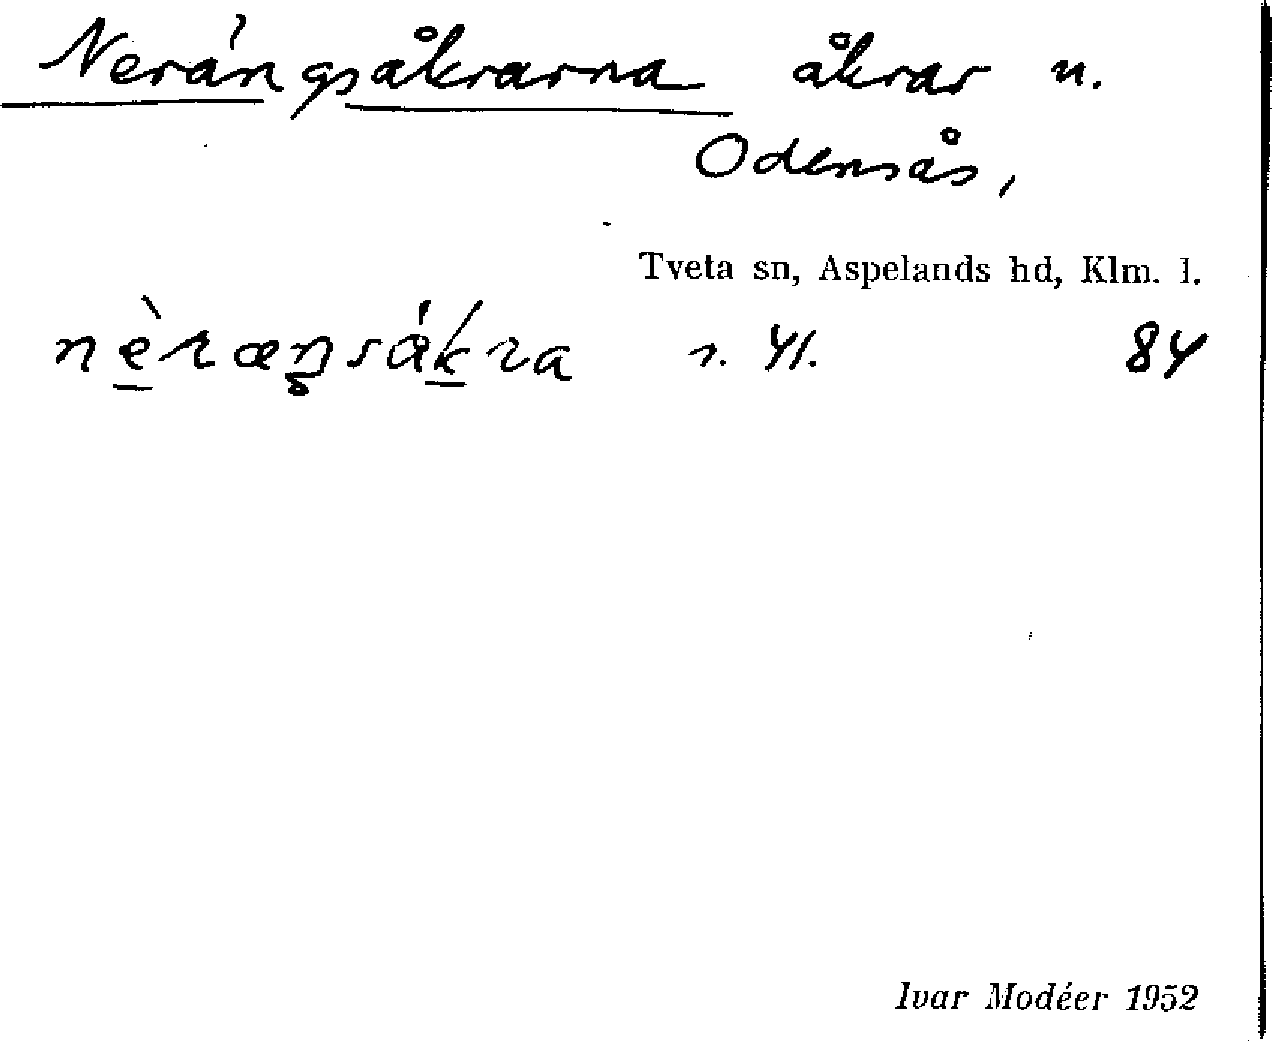 Nerängsåkrarna åkrar n.
Odensås,
Tveta sn, Aspelands hd, Klm. l.
nèræŋsåkra n. 41. 84
Ivar Modéer 1952